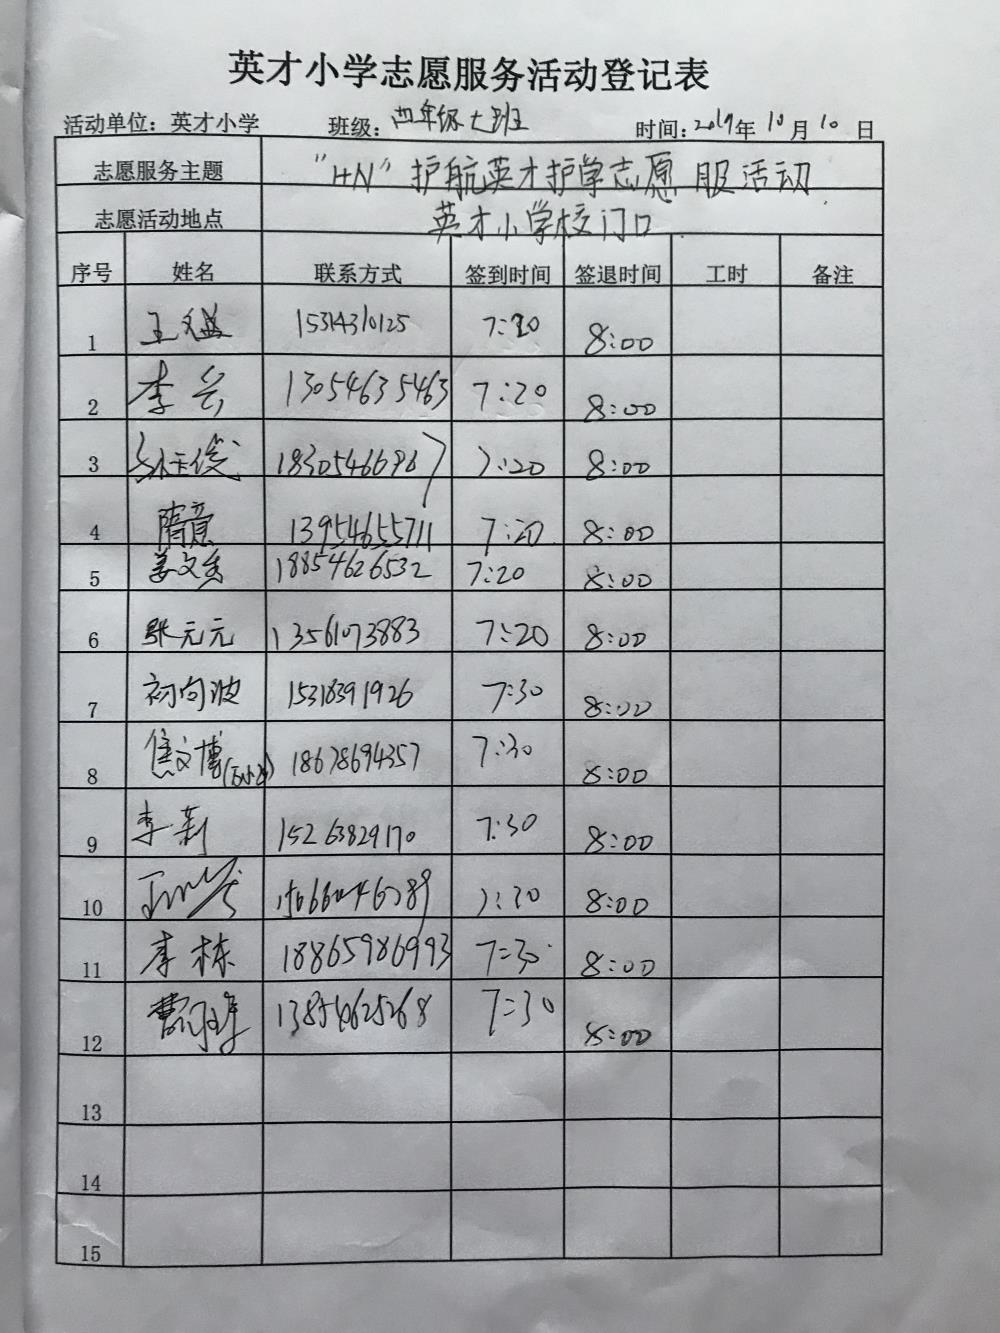 英才小学志愿服务活动登记表
活动单位：英才小学 班级：四年级七班 时间：2019年10月10日
志愿服务主题 “HN”护航英才护学志愿服活动
志愿活动地点 英才小学校门口
序号 姓名 联系方式 签到时间 签退时间 工时 备注
1 15314310125 7:20 8:00
2 李 13054635463 7:20 8:00
3 18305466967 7:20 8:00
4 隋意 13954655711 7:20 8:00
5 姜文秀 18854626532 7:20 8:00
6 张元元 13561073883 7:20 8:00
7 初向波 15318391926 7:30 8:00
8 焦文博 18678694357 7:30 8:00
9 李莉 15263829170 7:30 8:00
10 7:30 8:00
11 李栋 18865986993 7:30 8:00
12 曹 13854625268 7:30 8:00
13
14
15